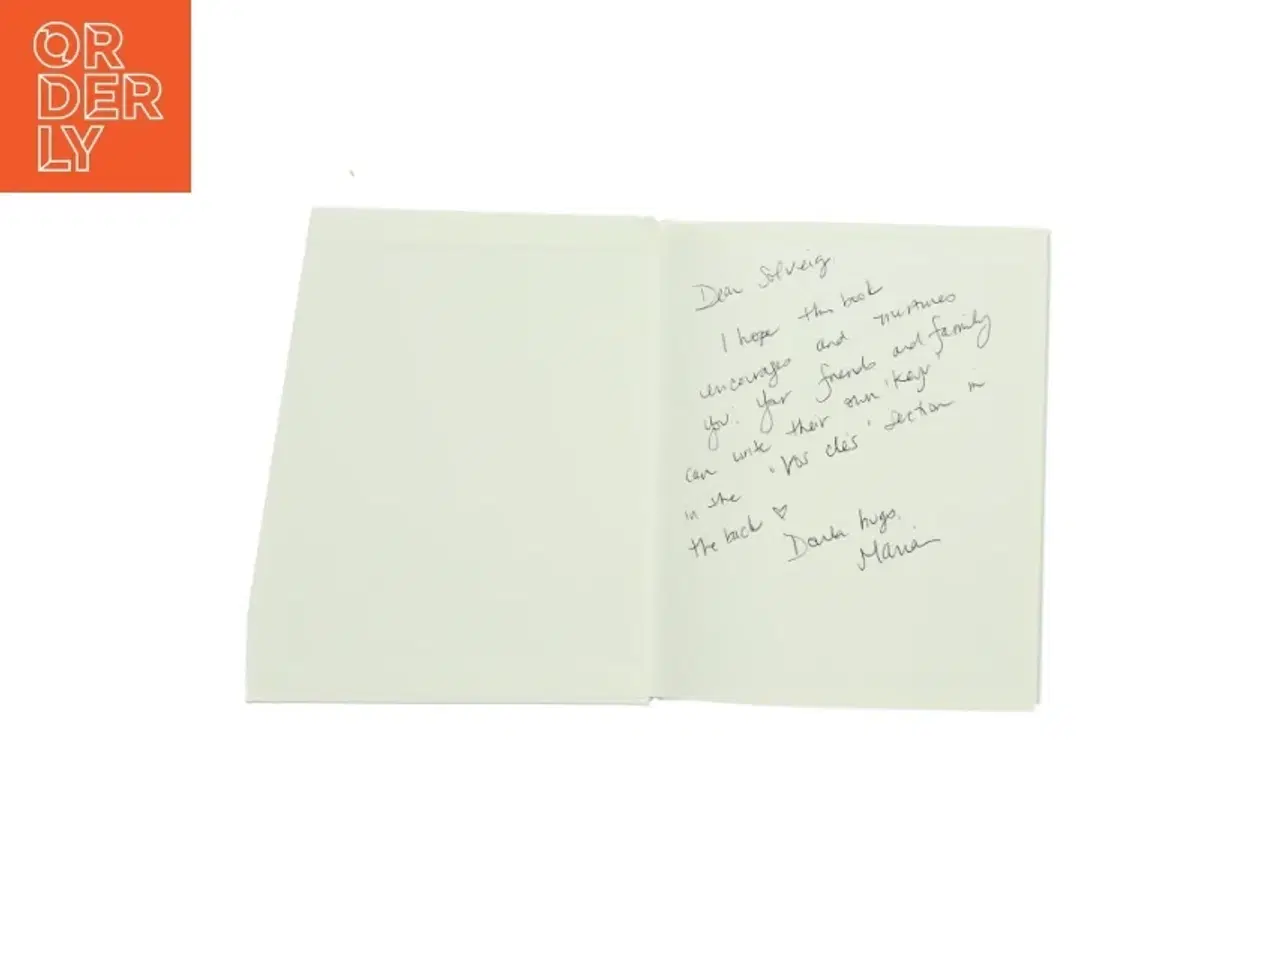 OR
DER
LY
Dear Solveig
I hope this book
encourages and nurtures
you. Your friends and family
can write their own 'Keys'
in the 'Vos clés' section in
the back ♡
hugs.